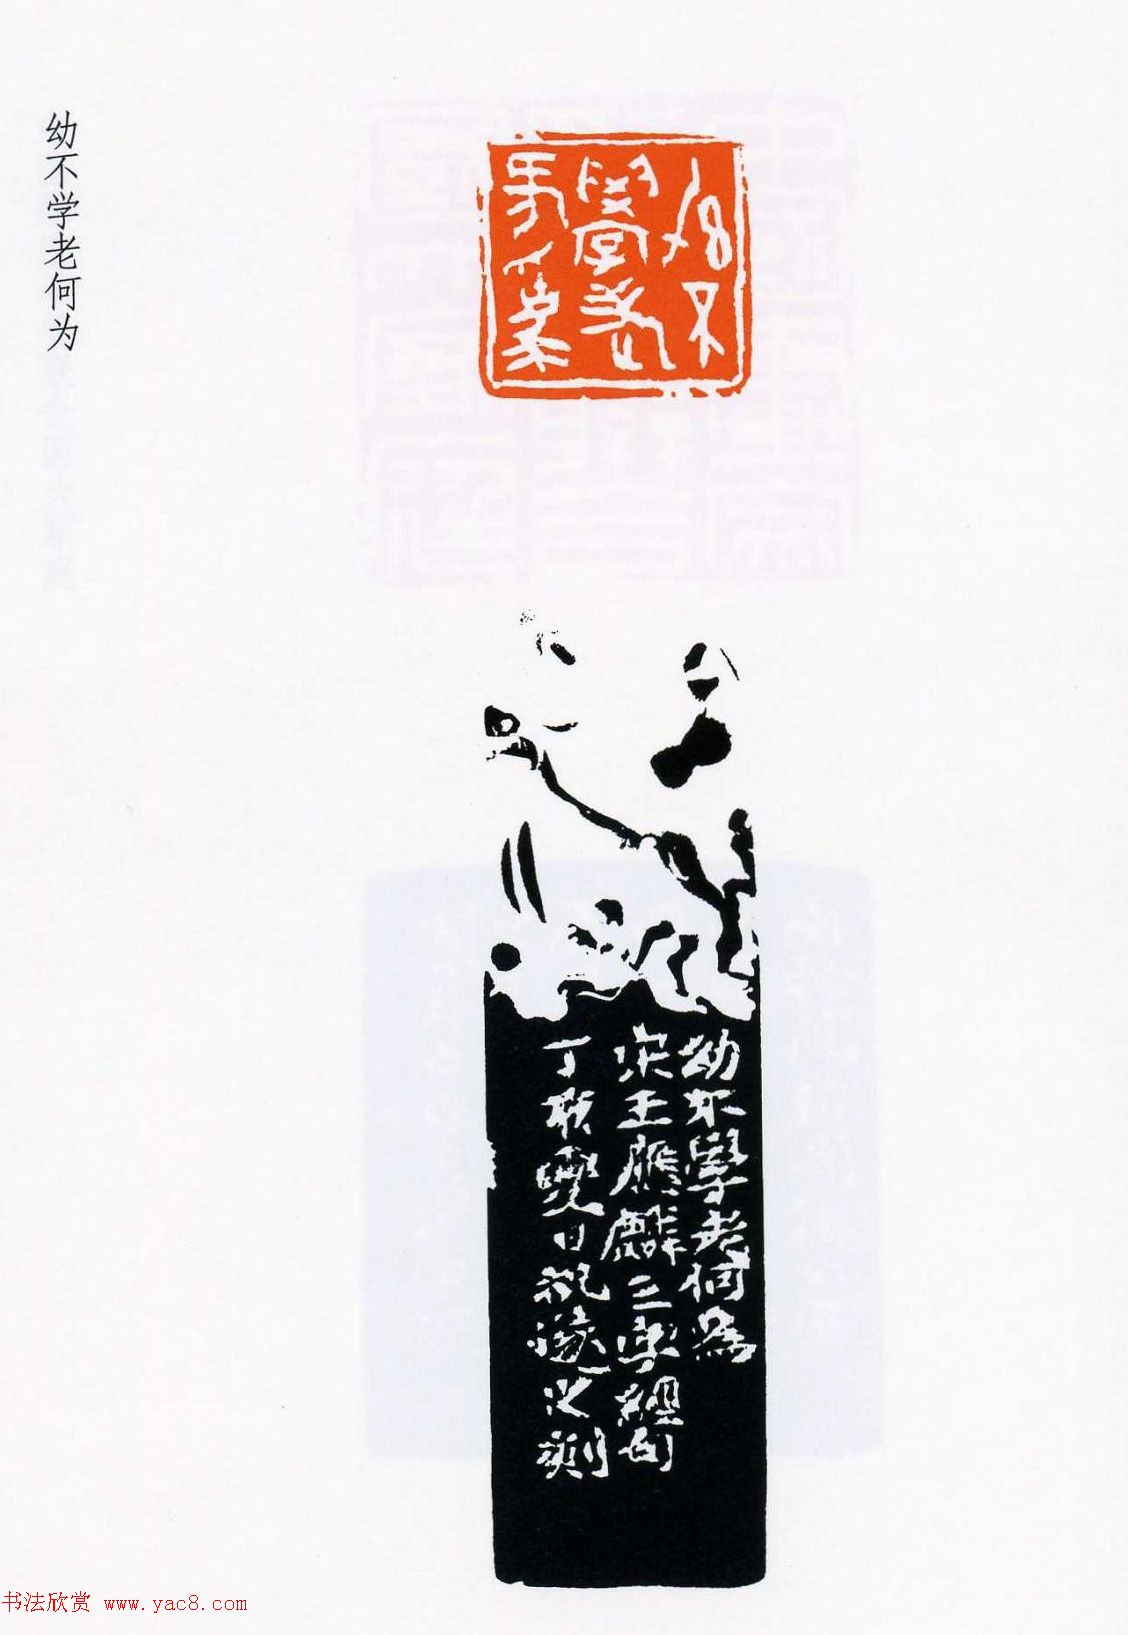 幼不学老何为
幼不學老何為
幼不學老何為
宋王應麟三字經句
丁亥夏日祝遂之刻
书法欣赏 www.yac8.com